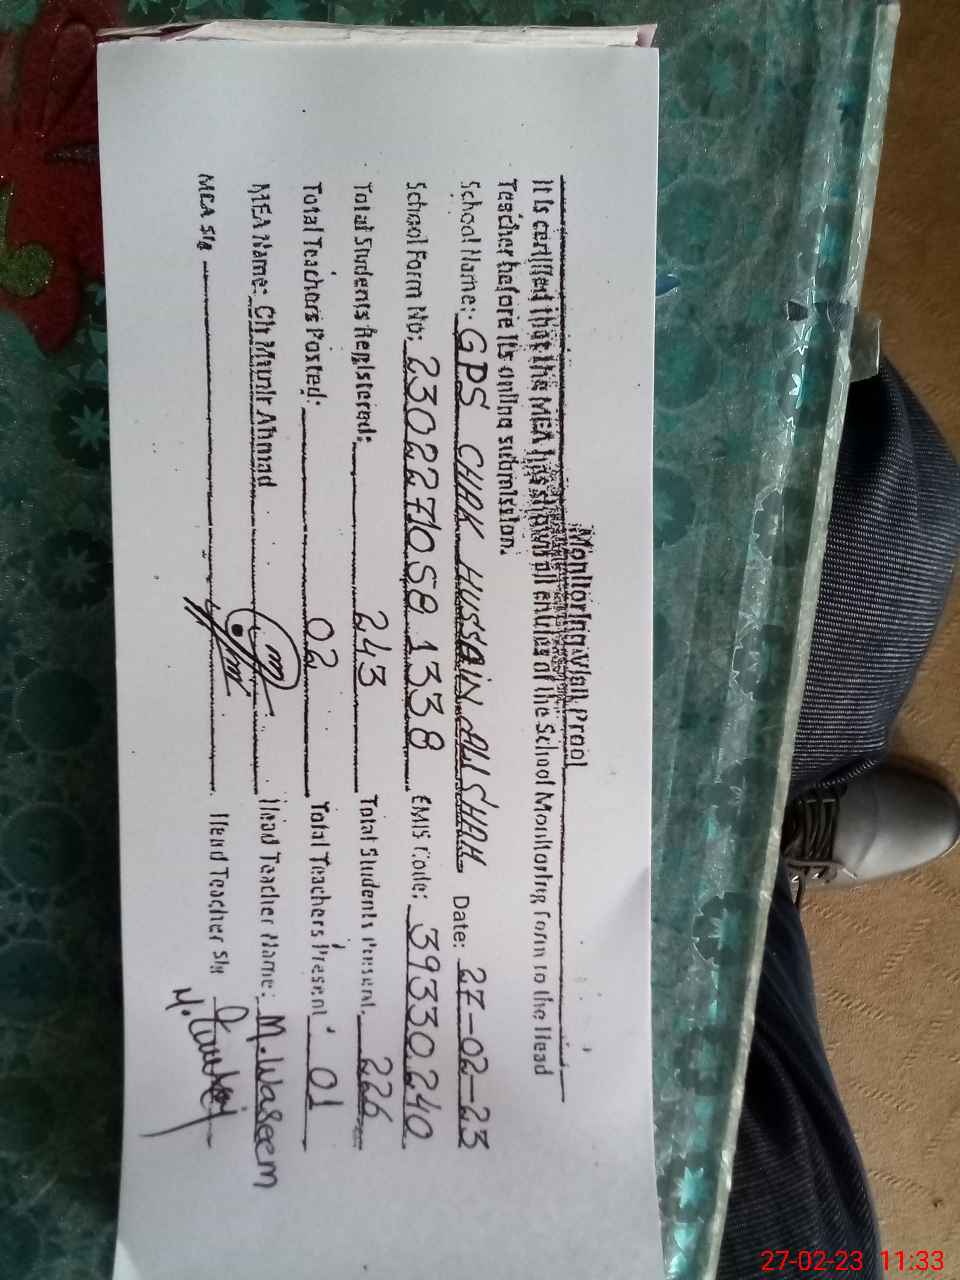 Monitoring Visit Proof
It is certified that the MEA has shown all entries of the School Monitoring Form to the Head
Teacher before its online submission.
School Name: GPS CHAK HUSSAIN ALI SHAH Date: 27-02-23
School Form No: 230227105813 38 EMIS Code: 39330240
Total Students Registered: 243 Total Students Present: 226
Total Teachers Posted: 02 Total Teachers Present: 01
MEA Name: Ch Munir Ahmad Head Teacher Name: M. Waseem
MEA Sig Head Teacher Sig
27-02-23 11:33